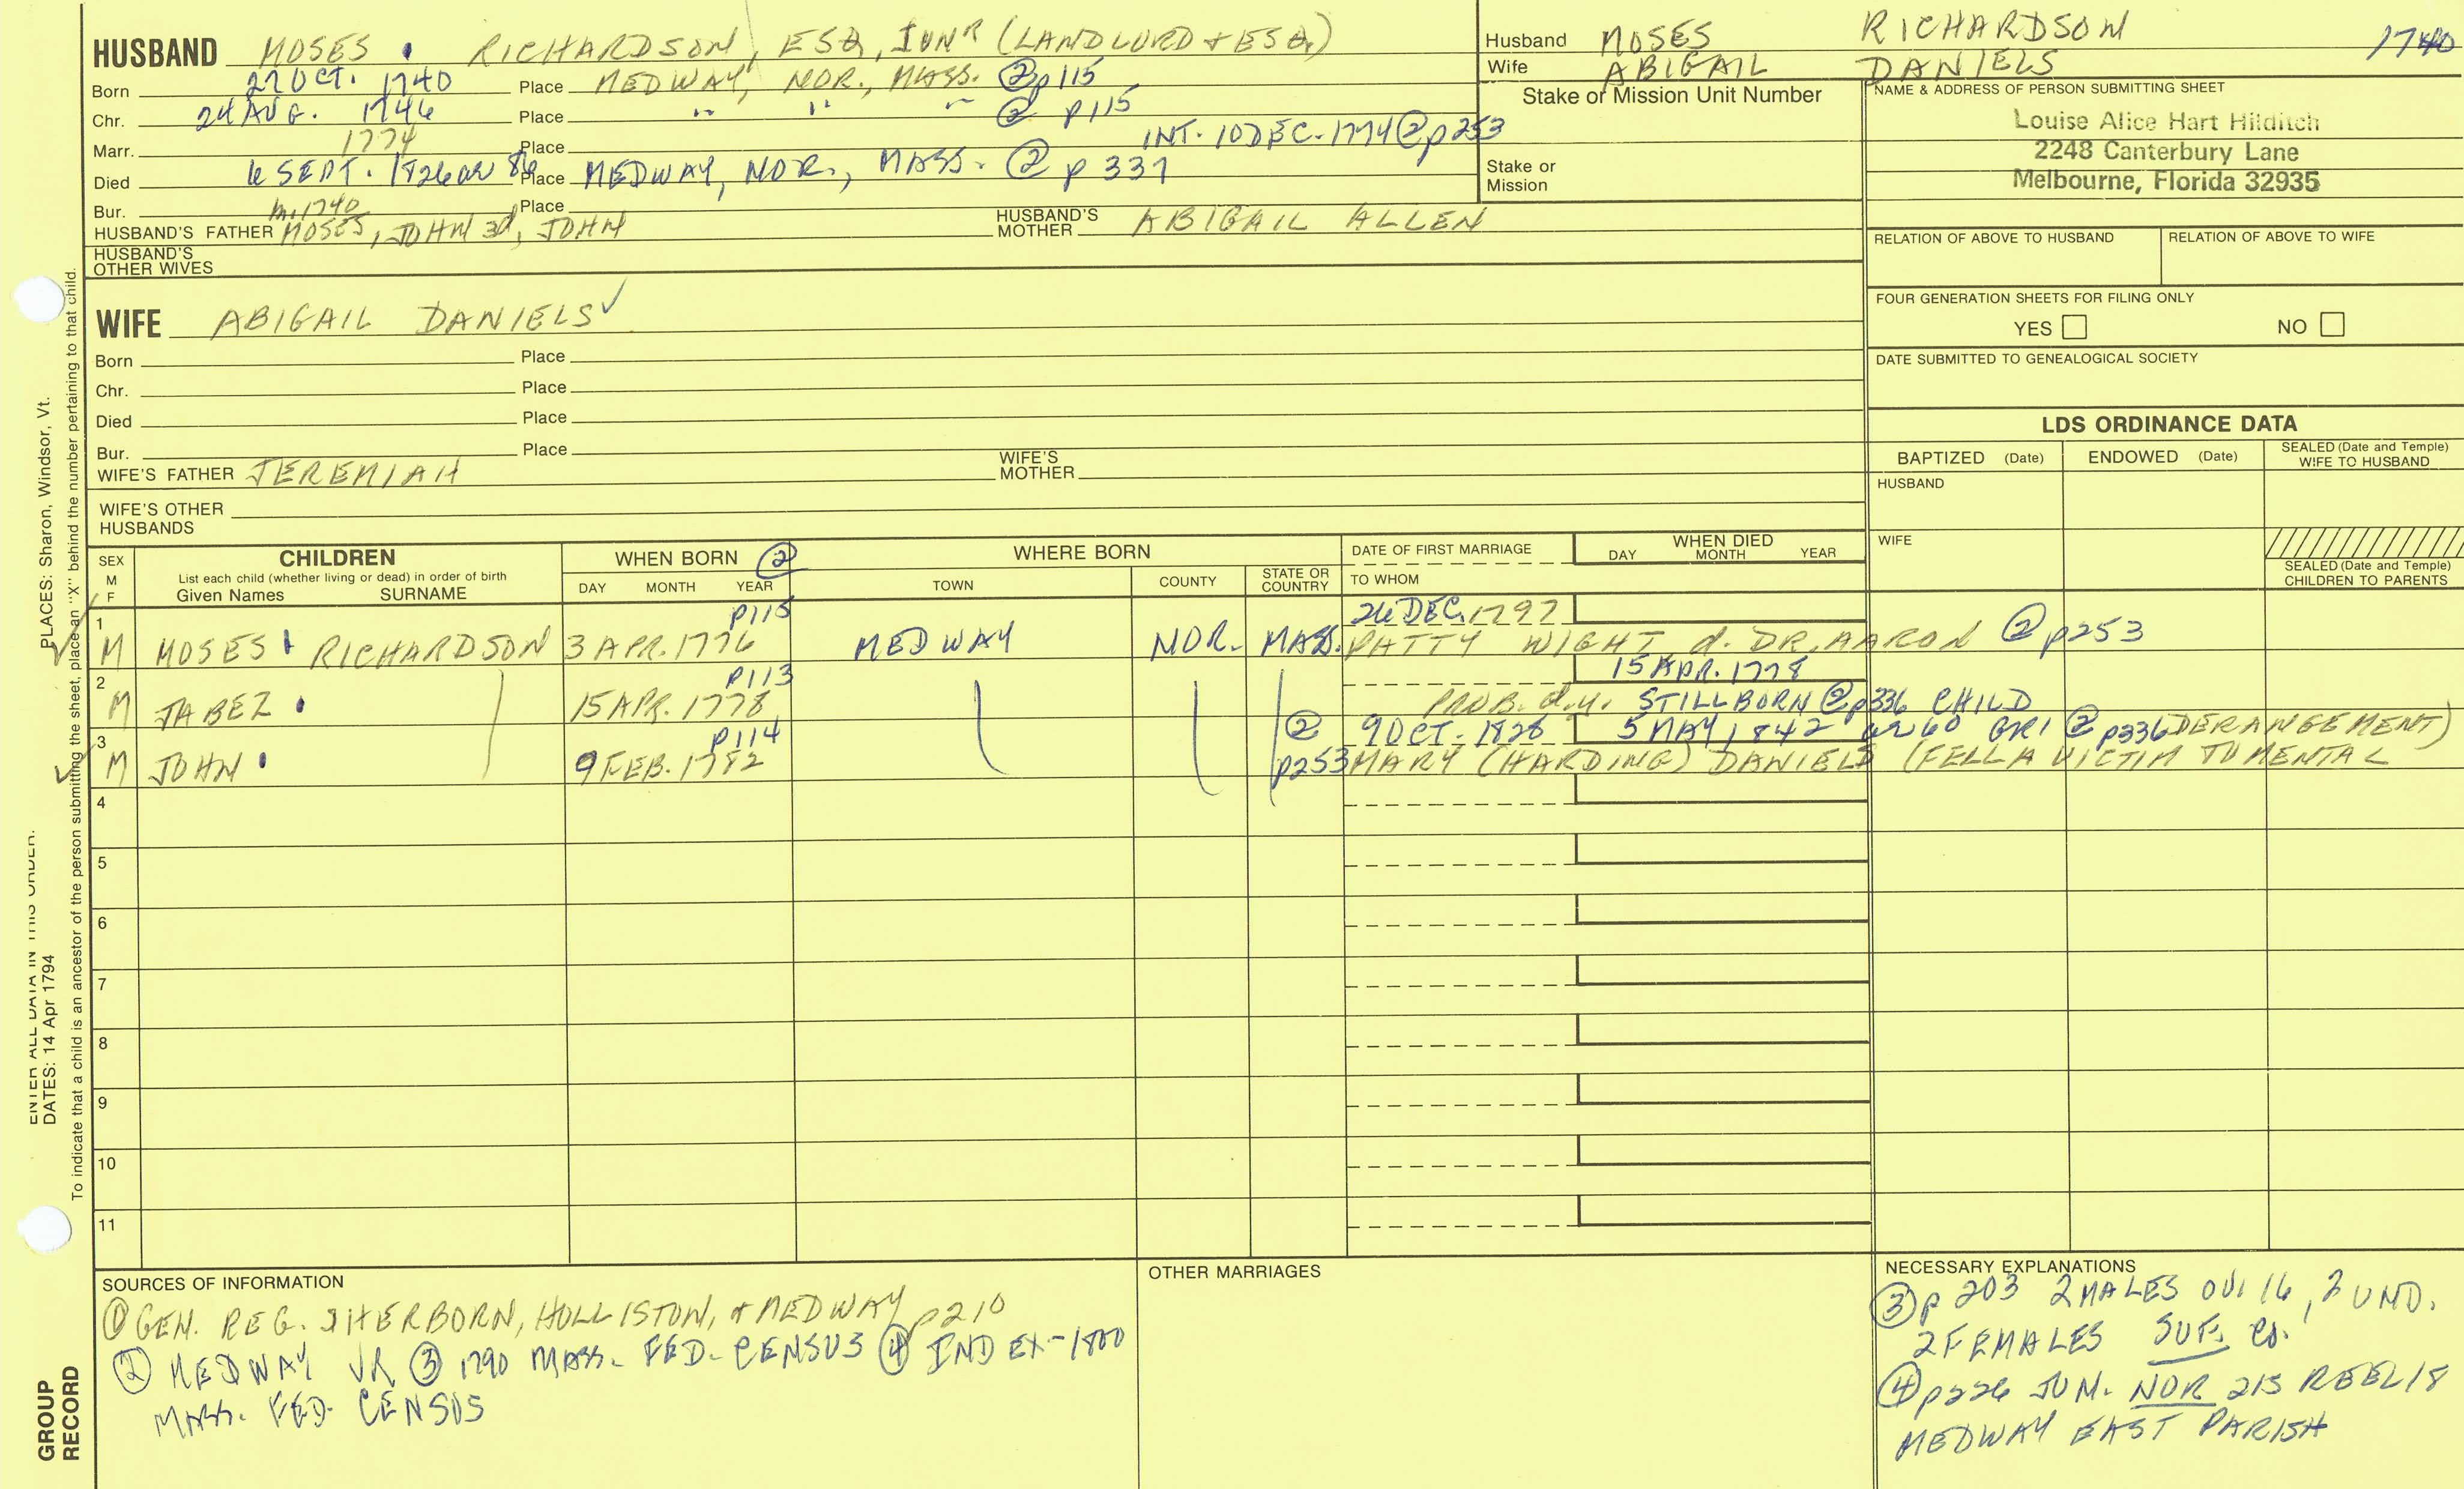 HUSBAND MOSES RICHARDSON, ESQ, JUNR (LANDLORD + ESQ.)
Born 27 OCT. 1740 Place MEDWAY, NOR., MASS. ② p115
Chr. 24 AUG. 1746 Place " " " ② p115
Marr. 1774 Place INT. 10 DEC. 1774 ② p253
Died 6 SEPT. 1826 ae 86 Place MEDWAY, NOR., MASS. ② p 337
Bur. Place
m. 1740
HUSBAND'S FATHER MOSES, JOHN 3d, JOHN HUSBAND'S MOTHER ABIGAIL ALLEN
HUSBAND'S OTHER WIVES
Husband MOSES RICHARDSON 1740
Wife ABIGAIL DANIELS
Stake or Mission Unit Number
Stake or Mission
NAME & ADDRESS OF PERSON SUBMITTING SHEET
Louise Alice Hart Hilditch
2248 Canterbury Lane
Melbourne, Florida 32935
RELATION OF ABOVE TO HUSBAND RELATION OF ABOVE TO WIFE
FOUR GENERATION SHEETS FOR FILING ONLY
YES NO
DATE SUBMITTED TO GENEALOGICAL SOCIETY
WIFE ABIGAIL DANIELS ✓
Born Place
Chr. Place
Died Place
Bur. Place
WIFE'S FATHER JEREMIAH WIFE'S MOTHER
WIFE'S OTHER HUSBANDS
LDS ORDINANCE DATA
BAPTIZED (Date) ENDOWED (Date) SEALED (Date and Temple) WIFE TO HUSBAND
HUSBAND
WIFE
SEALED (Date and Temple) CHILDREN TO PARENTS
SEX M F
CHILDREN
List each child (whether living or dead) in order of birth
Given Names SURNAME
WHEN BORN ②
DAY MONTH YEAR
WHERE BORN
TOWN COUNTY STATE OR COUNTRY
DATE OF FIRST MARRIAGE
TO WHOM
WHEN DIED
DAY MONTH YEAR
1 p115 26 DEC. 1797
M MOSES RICHARDSON 3 APR. 1776 MEDWAY NOR. MASS. PATTY WIGHT d. DR. AARON ② p253
2 p113 15 APR. 1778
M JABEZ 15 APR. 1778 PROB. d.y. STILLBORN ② p336 CHILD
3 p114 ② 9 OCT. 1828 5 MAY 1842 ae 60 GR1 ② p336 DERANGEMENT)
M JOHN 9 FEB. 1782 p253 MARY (HARDING) DANIELS (FELL A VICTIM TO MENTAL
4
5
6
7
8
9
10
11
SOURCES OF INFORMATION
① GEN. REG. SHERBORN, HOLLISTON, + MEDWAY p210
② MEDWAY VR ③ 1790 MASS. FED. CENSUS ④ INDEX-1800
MASS. FED. CENSUS
OTHER MARRIAGES
NECESSARY EXPLANATIONS
③ p 203 2 MALES OV. 16, 2 UND.
2 FEMALES SUF. CO.
④ p226 JUN. NOR 215 REEL 18
MEDWAY EAST PARISH
PLACES: Sharon, Windsor, Vt.
To indicate that a child is an ancestor of the person submitting the sheet, place an "X" behind the number pertaining to that child.
ENTER ALL DATA IN THIS ORDER:
DATES: 14 Apr 1794
GROUP
RECORD